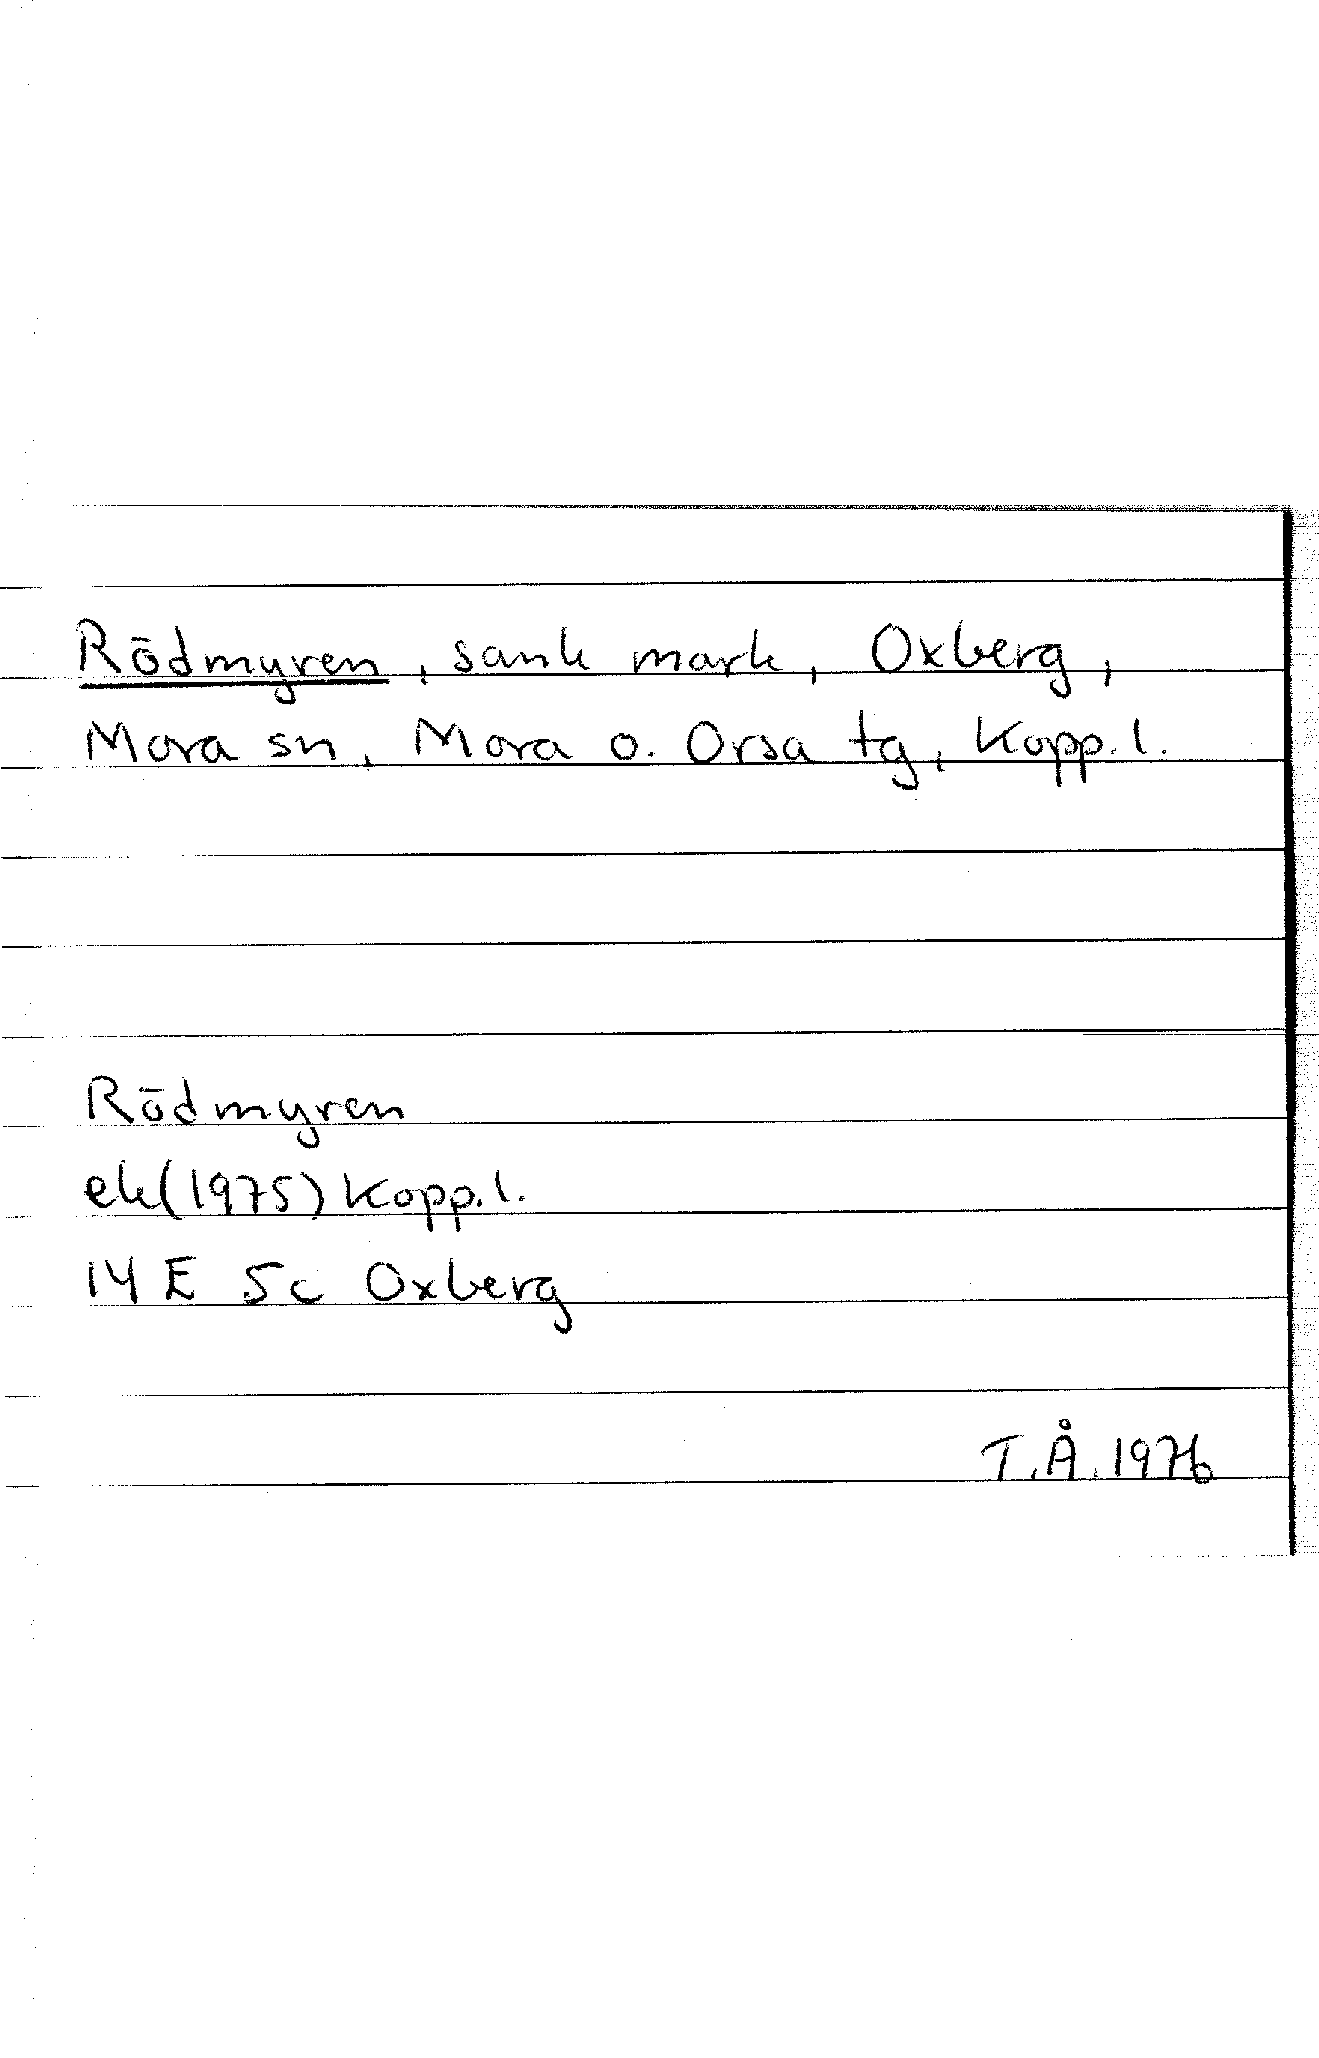 Rödmyren, sank mark, Oxberg,
Mora sn, Mora o. Orsa tg, Kopp. l.
Rödmyren
ek (1975) Kopp. l.
14 E 5c Oxberg
T.Å. 1976